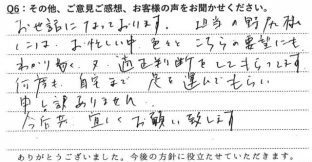 Q6：その他、ご意見ご感想、お客様の声をお聞かせください。
お世話になっております。担当の野瓜様
には、お忙しい中、色々とこちらの要望にも
わかり易く、又、適正判断をしてもらってます
何度も、自宅まで足を運んでもらい
申し訳ありません。
今后共、宜しくお願い致します
ありがとうございました。今後の方針に役立たせていただきます。